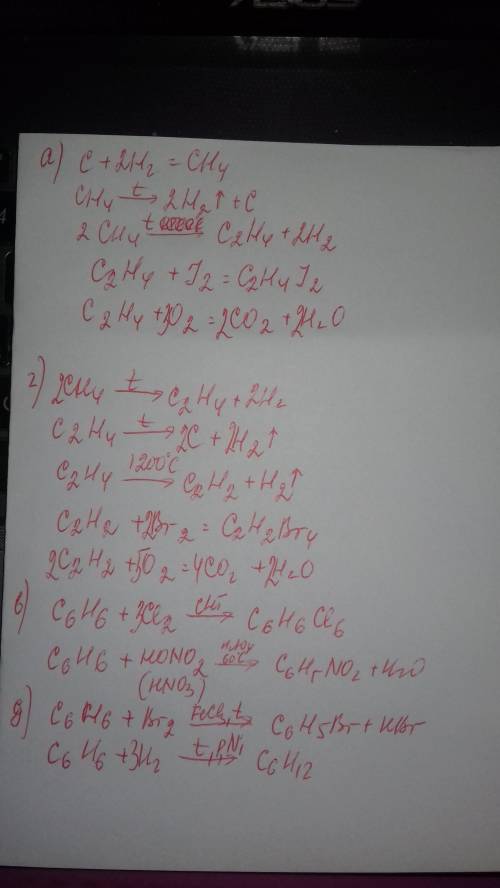 а) C + 2H2 = CH4
CH4 t→ 2H2↑ + C
2CH4 t→ C2H4 + 2H2
C2H4 + J2 = C2H4J2
C2H4 + 3O2 = 2CO2 + 2H2O
г) 2CH4 t→ C2H4 + 2H2
C2H4 t→ 2C + 2H2↑
C2H4 1200°C→ C2H2 + H2↑
C2H2 + 2Br2 = C2H2Br4
2C2H2 + 5O2 = 4CO2 + 2H2O
в) C6H6 + 3Cl2 свет→ C6H6Cl6
C6H6 + HONO2 60°C→ C6H5NO2 + H2O
(HNO3)
д) C6H6 + Br2 FeCl3, t→ C6H5Br + HBr
C6H6 + 3H2 t, p, Ni→ C6H12